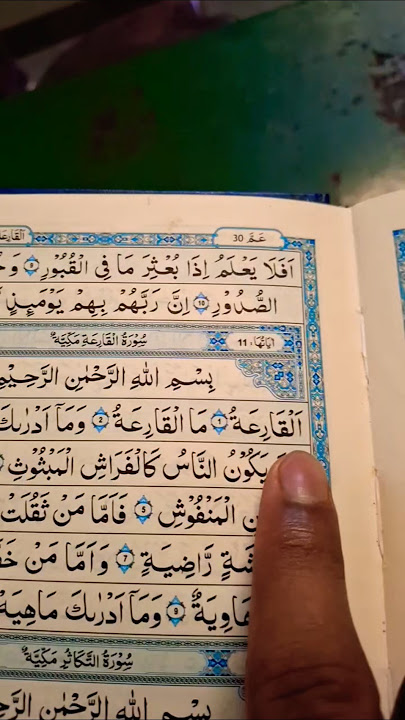 عَمَّ 30
اَفَلَا يَعْلَمُ اِذَا بُعْثِرَ مَا فِى الْقُبُوْرِ ۙ‏ ٩
الصُّدُوْرِ ۙ‏ ١٠ اِنَّ رَبَّهُمْ بِهِمْ يَوْمَئِذٍ
اٰيَاتُهَا، 11 سُوْرَةُ الْقَارِعَةِ مَكِّيَّةٌ
بِسْمِ اللّٰهِ الرَّحْمٰنِ الرَّحِيْمِ
اَلْقَارِعَةُ ۙ‏ ١ مَا الْقَارِعَةُ ۚ‏ ٢ وَمَاۤ اَدْرٰىكَ
يَكُوْنُ النَّاسُ كَالْفَرَاشِ الْمَبْثُوْثِ
الْمَنْفُوْشِ ؕ‏ ٥ فَاَمَّا مَنْ ثَقُلَتْ
رَّاضِيَةٍ ؕ‏ ٧ وَاَمَّا مَنْ
هَاوِيَةٌ ؕ‏ ٩ وَمَاۤ اَدْرٰىكَ مَاهِيَهْ
سُوْرَةُ التَّكَاثُرِ مَكِّيَّةٌ
بِسْمِ اللّٰهِ الرَّحْمٰنِ